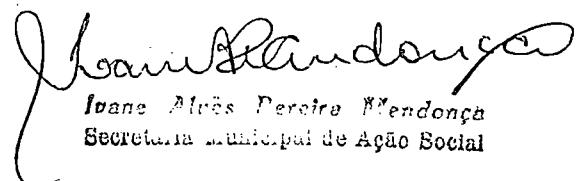 Ivane Alves Pereira Mendonça
Secretaria Municipal de Ação Social